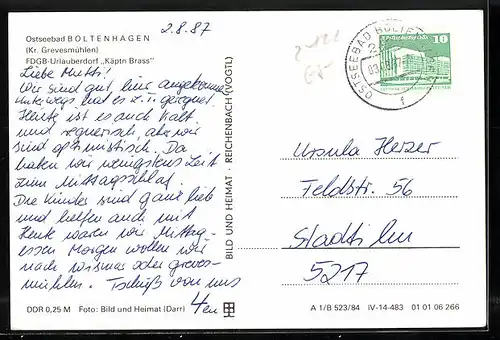 2.8.87
Ostseebad BOLTENHAGEN
(Kr. Grevesmühlen)
FDGB-Urlauberdorf „Käptn Brass"
Liebe Mutti!
Wir sind gut hier angekommen
unterwegs hat es z.T. geregnet.
Heute ist es auch kalt
und regnerisch, aber wir
sind optimistisch. Da
haben wir wenigstens Zeit
zum Mittagsschlaf.
Die Kinder sind ganz lieb
und helfen auch mit
Heute waren wir Mittag-
essen Morgen wollen wir
nach Wismar oder Greves-
mühlen. Tschüß von uns
4en
DDR 0,25 M Foto: Bild und Heimat (Darr)
BILD UND HEIMAT · REICHENBACH (VOGTL)
OSTSEEBAD BOLTE
10
Ursula Herzer
Feldstr. 56
Stadtilm
5217
A 1/B 523/84 IV-14-483 01 01 06 266